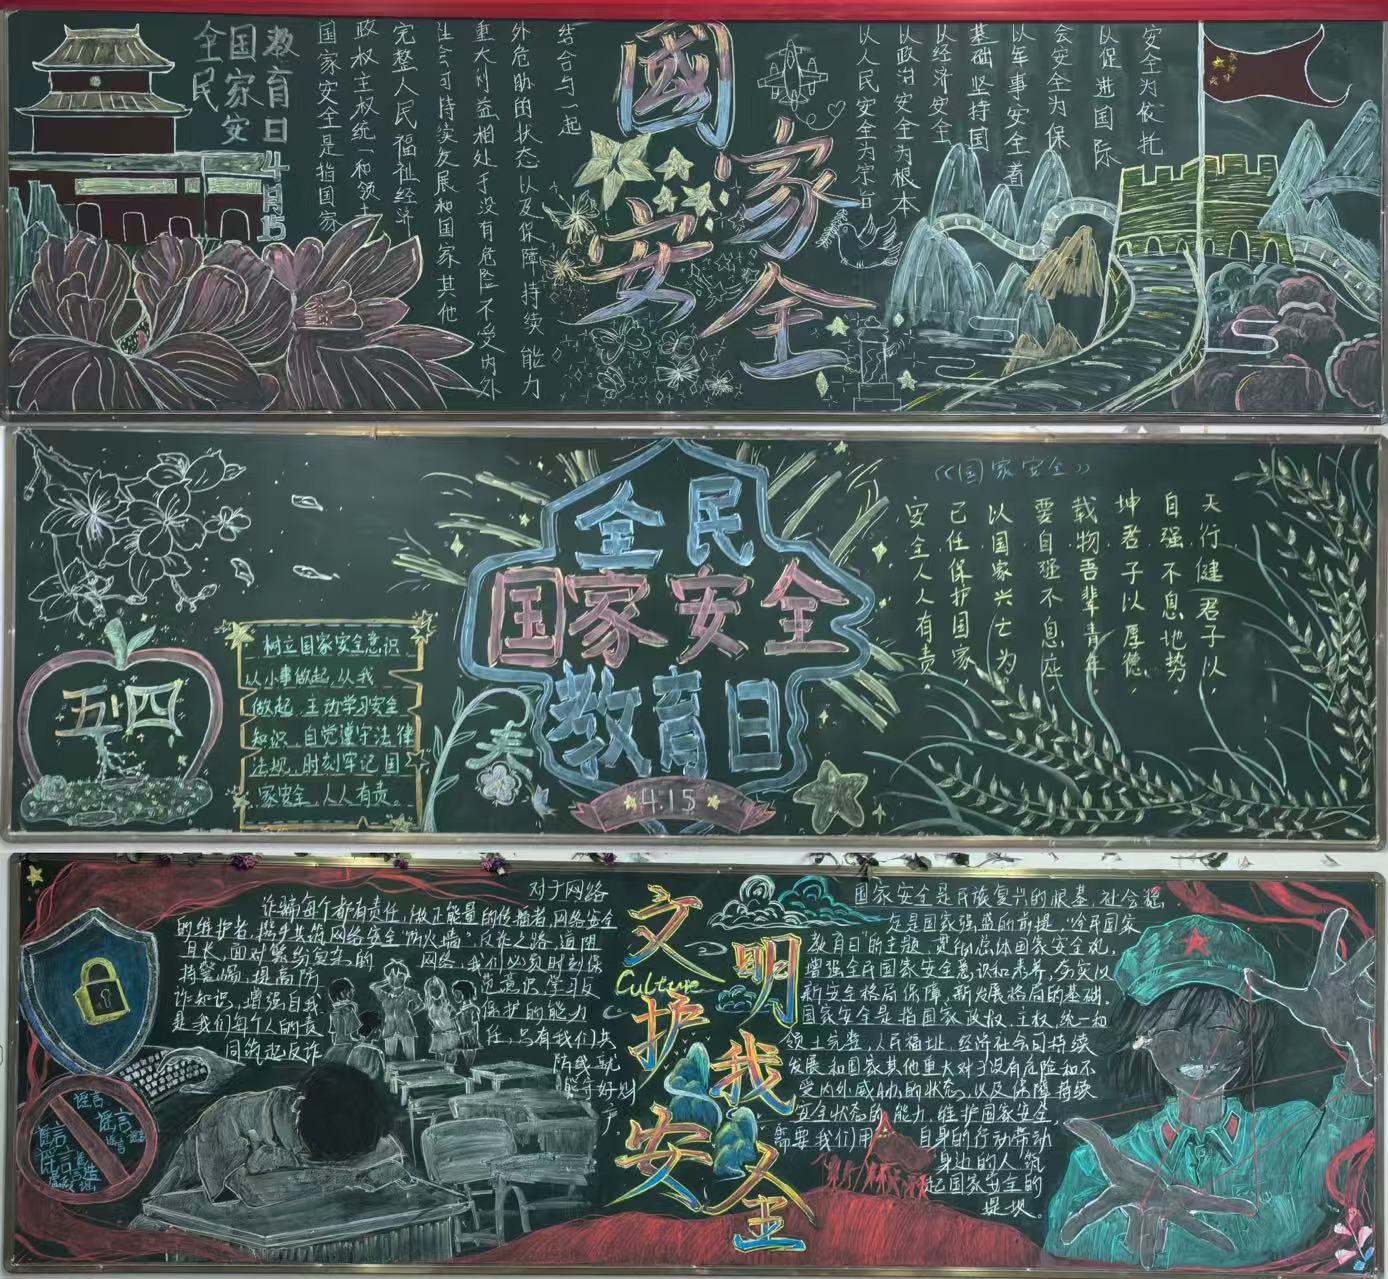 全国教
民家育
安日
4月15
国家安全是指国家
政权主权统一和领土
完整人民福祉经济
社会可持续发展和国家其他
重大利益相处于没有危险不受内外
外危胁的状态以及保障持续能力
结合与一起
國家安全
以人民安全为宗旨
以政治安全为根本
以经济安全
基础坚持国
以军事安全着
会安全为保
以促进国际
安全为依托
五四
树立国家安全意识
从小事做起,从我
做起,主动学习安全
知识,自觉遵守法律
法规,时刻牢记国
家安全,人人有责。
春
全民
国家安全
教育日
4.15
《国家安全》
天行健君子以,
自强不息地势,
坤君子以厚德,
载物吾辈青年,
要自强不息应,
以国家兴亡为。
己任保护国家,
安全人人有责。
对于网络
诈骗每个都有责任,做正能量的传播者,网络安全
的维护者,携手共筑网络安全"防火墙",反诈之路,道阻
且长,面对繁多复杂的网络,我们必须时刻保
持警惕,提高防范意识,学习反
诈知识,增强自我保护的能力
是我们每个人的责任,只有我们共
同筑起反诈防线就
能守好财
产,
谣言
谣言
谣言
谣言
文明
Culture
护我
安全
国家安全是民族复兴的根基,社会稳
定是国家强盛的前提,"全民国家
教育日"的主题,贯彻总体国家安全观,
增强全民国家安全意识和素养,夯实以
新安全格局保障,新发展格局的基础.
国家安全是指国家政权、主权、统一和
领土完整,人民福址,经济社会可持续
发展和国家其他重大对于没有危险和不
受内外威胁的状态,以及保障持续
安全状态的能力,维护国家安全,
需要我们用自身的行动带动
身边的人,筑
起国家安全的
堤坝。